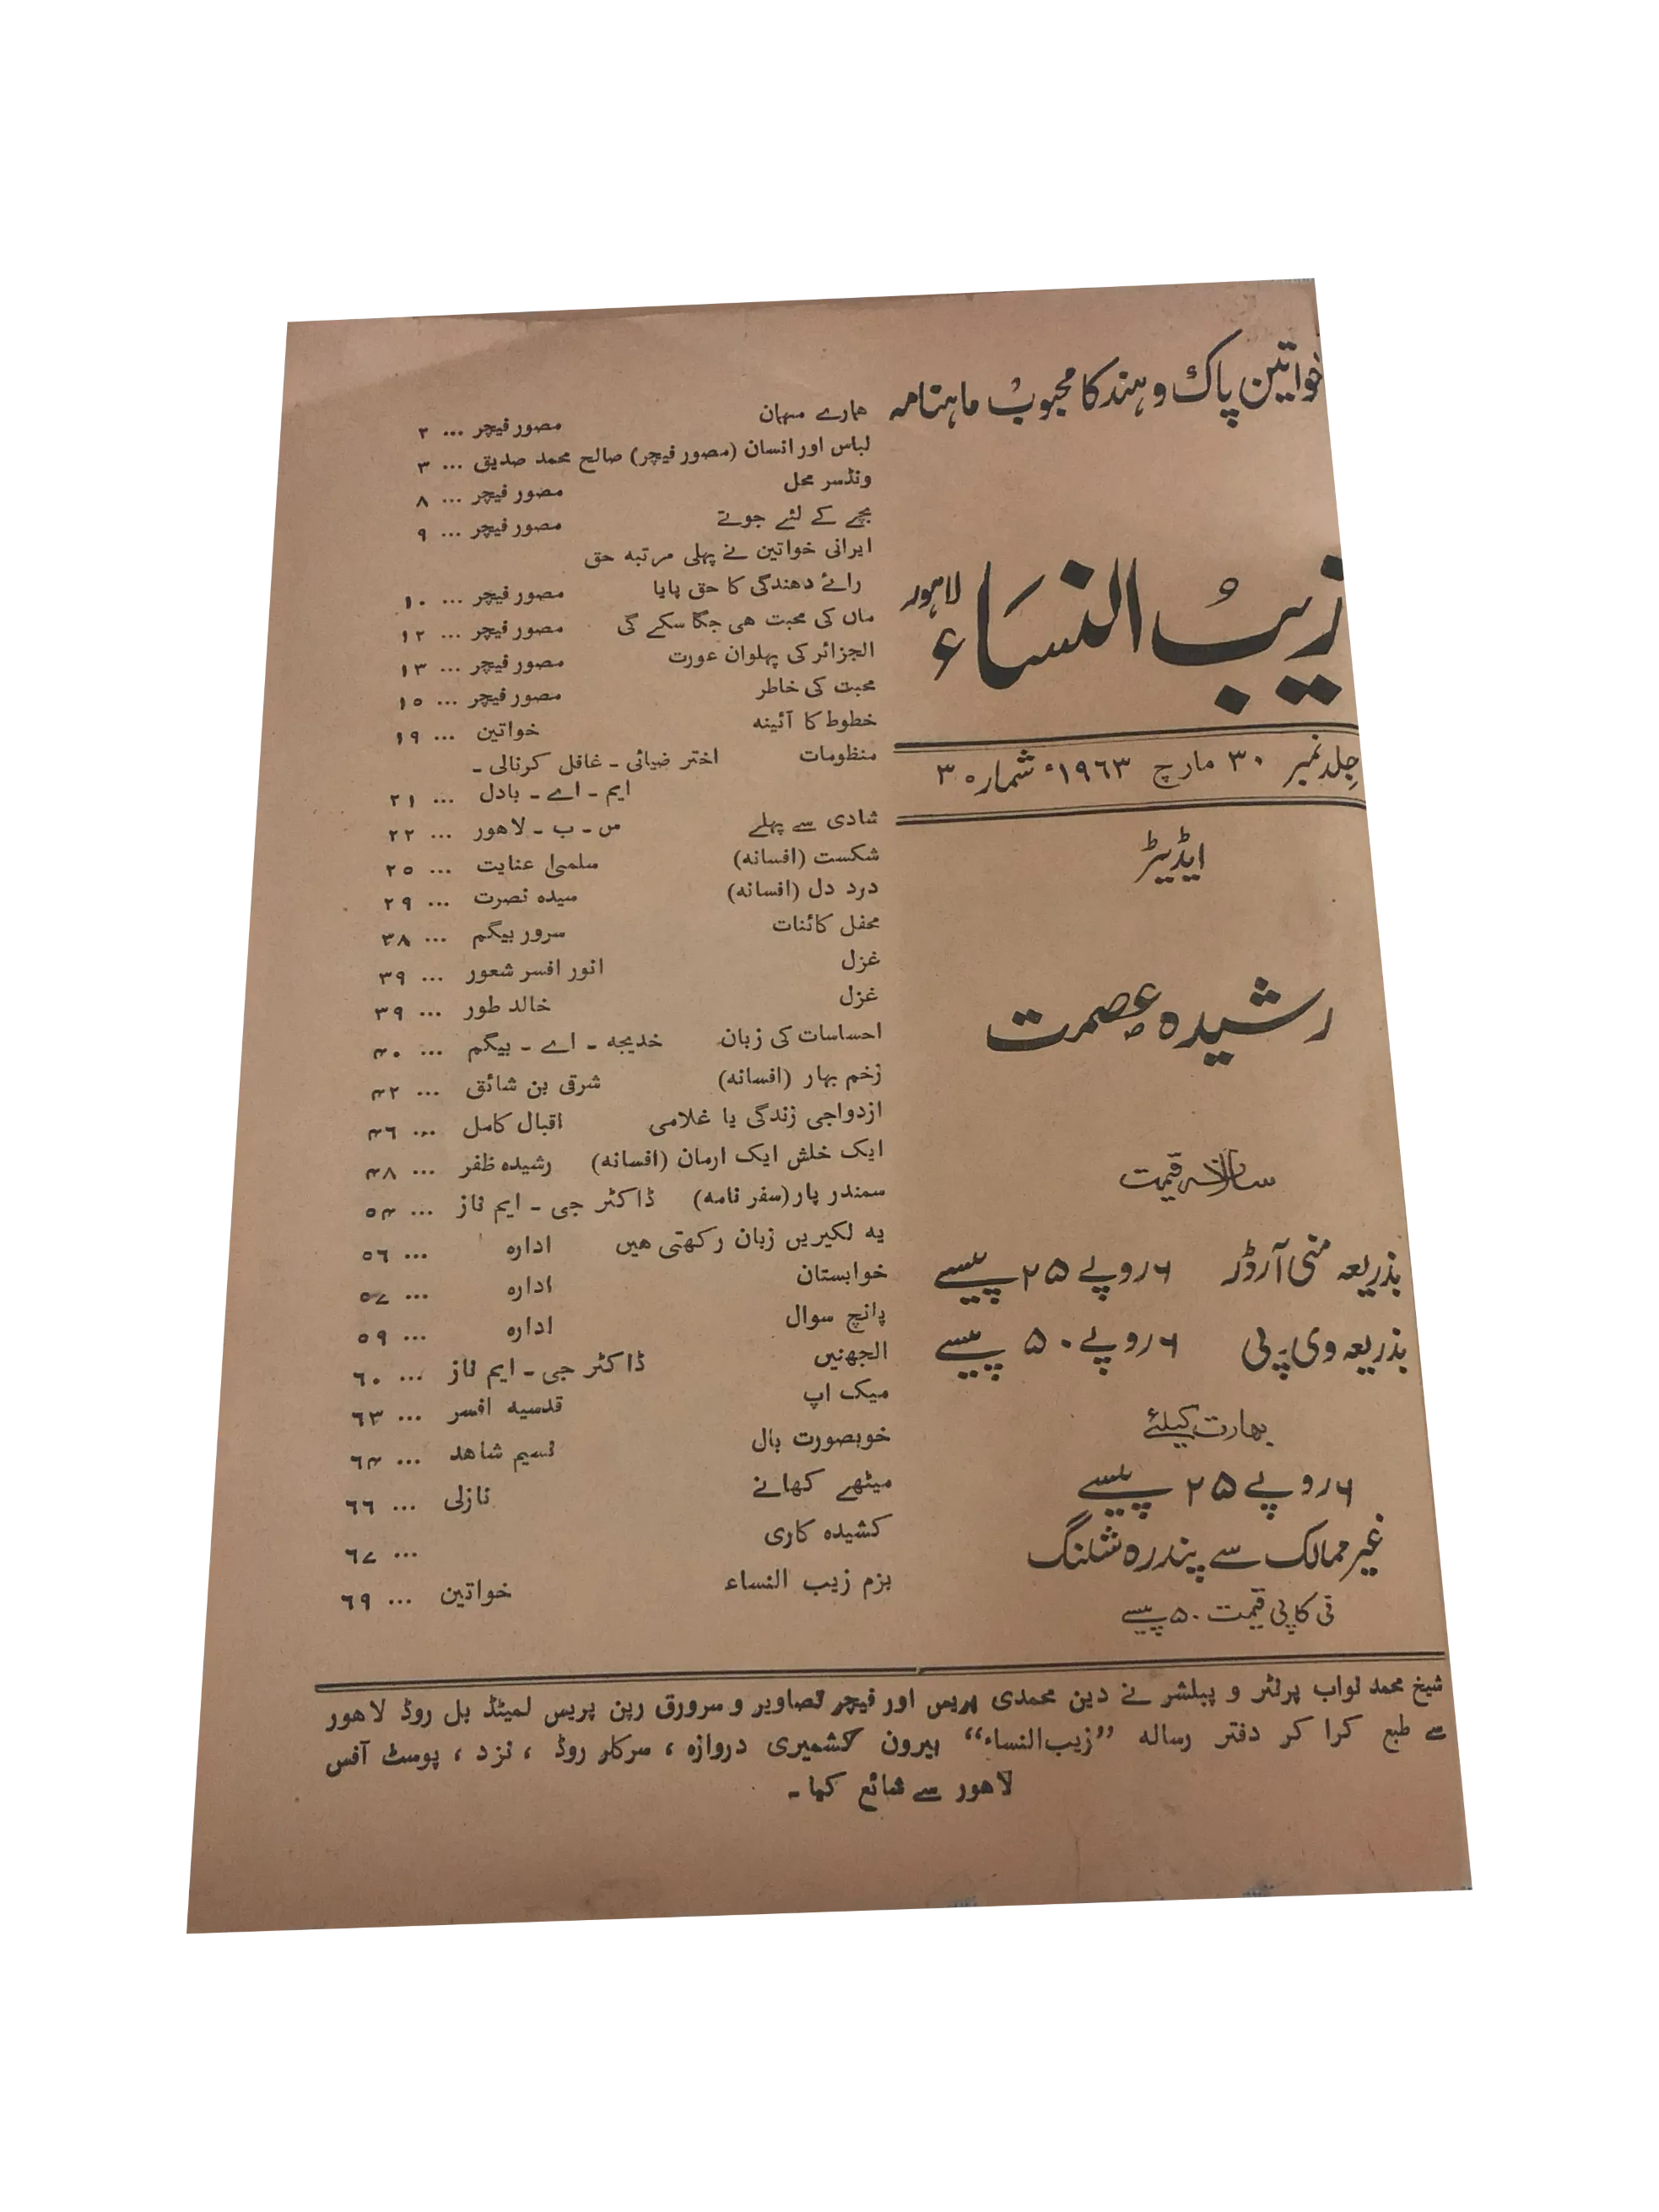 خواتین پاک و ہند کا محبوب ماہنامہ
زیبُ النساء لاہور
جلد نمبر ۳۰ مارچ ۱۹۶۳ء شمارہ ۳
ایڈیٹر
رشیدہ عصمت
سالانہ قیمت
بذریعہ منی آرڈر ۶ روپے ۲۵ پیسے
بذریعہ وی پی ۶ روپے ۵۰ پیسے
بھارت کیلئے
۶ روپے ۲۵ پیسے
غیر ممالک سے پندرہ شلنگ
فی کاپی قیمت ۵۰ پیسے
ہمارے مہمان مصور فیچر ... ۲
لباس اور انسان (مصور فیچر) صالح محمد صدیق ... ۳
ونڈسر محل مصور فیچر ... ۸
بچے کے لئے جوتے مصور فیچر ... ۹
ایرانی خواتین نے پہلی مرتبہ حق
رائے دہندگی کا حق پایا مصور فیچر ... ۱۰
ماں کی محبت ہی جگا سکے گی مصور فیچر ... ۱۲
الجزائر کی پہلوان عورت مصور فیچر ... ۱۳
محبت کی خاطر مصور فیچر ... ۱۵
خطوط کا آئینہ خواتین ... ۱۹
منظومات اختر ضیائی ۔ غافل کرنالی ۔
ایم ۔ اے ۔ بادل ... ۲۱
شادی سے پہلے س ۔ ب ۔ لاہور ... ۲۲
شکست (افسانہ) سلمیٰ عنایت ... ۲۵
درد دل (افسانہ) سیدہ نصرت ... ۲۹
محفل کائنات سرور بیگم ... ۳۸
غزل انور افسر شعور ... ۳۹
غزل خالد طور ... ۳۹
احساسات کی زبان خدیجہ ۔ اے ۔ بیگم ... ۴۰
زخم بہار (افسانہ) شرق بن شائق ... ۴۲
ازدواجی زندگی یا غلامی اقبال کامل ... ۴۶
ایک خلش ایک ارمان (افسانہ) رشیدہ ظفر ... ۴۸
سمندر پار (سفر نامہ) ڈاکٹر جی ۔ ایم ناز ... ۵۴
یہ لکیریں زبان رکھتی ہیں ادارہ ... ۵۶
خوابستان ادارہ ... ۵۷
پانچ سوال ادارہ ... ۵۹
الجھنیں ڈاکٹر جی ۔ ایم ناز ... ۶۰
میک اپ قدسیہ افسر ... ۶۳
خوبصورت بال نسیم شاہد ... ۶۴
میٹھے کھانے نازلی ... ۶۶
کشیدہ کاری ... ۶۷
بزم زیب النساء خواتین ... ۶۹
شیخ محمد نواب پرنٹر و پبلشر نے دین محمدی پریس اور فیچر تصاویر و سرورق رپن پریس لمیٹڈ بل روڈ لاہور
سے طبع کرا کر دفتر رسالہ ”زیب النساء“ بیرون کشمیری دروازہ ، سرکلر روڈ ، نزد ، پوسٹ آفس
لاہور سے شائع کیا ۔